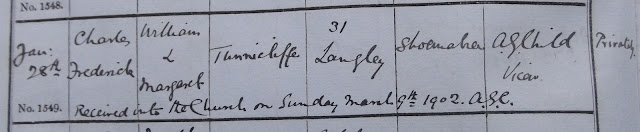 No. 1548.
Jan: 28th
Charles Frederick
William & Margaret
Tunnicliffe
31 Langley
Shoemaker
A.G. Child Vicar.
Privately
Received into the Church on Sunday March 9th 1902. A.G.C.
No. 1549.